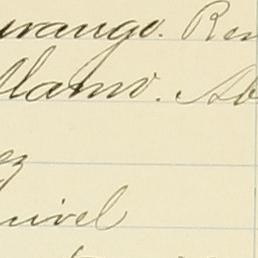 urango. Ren
Alamo. Ab
ez
uivel